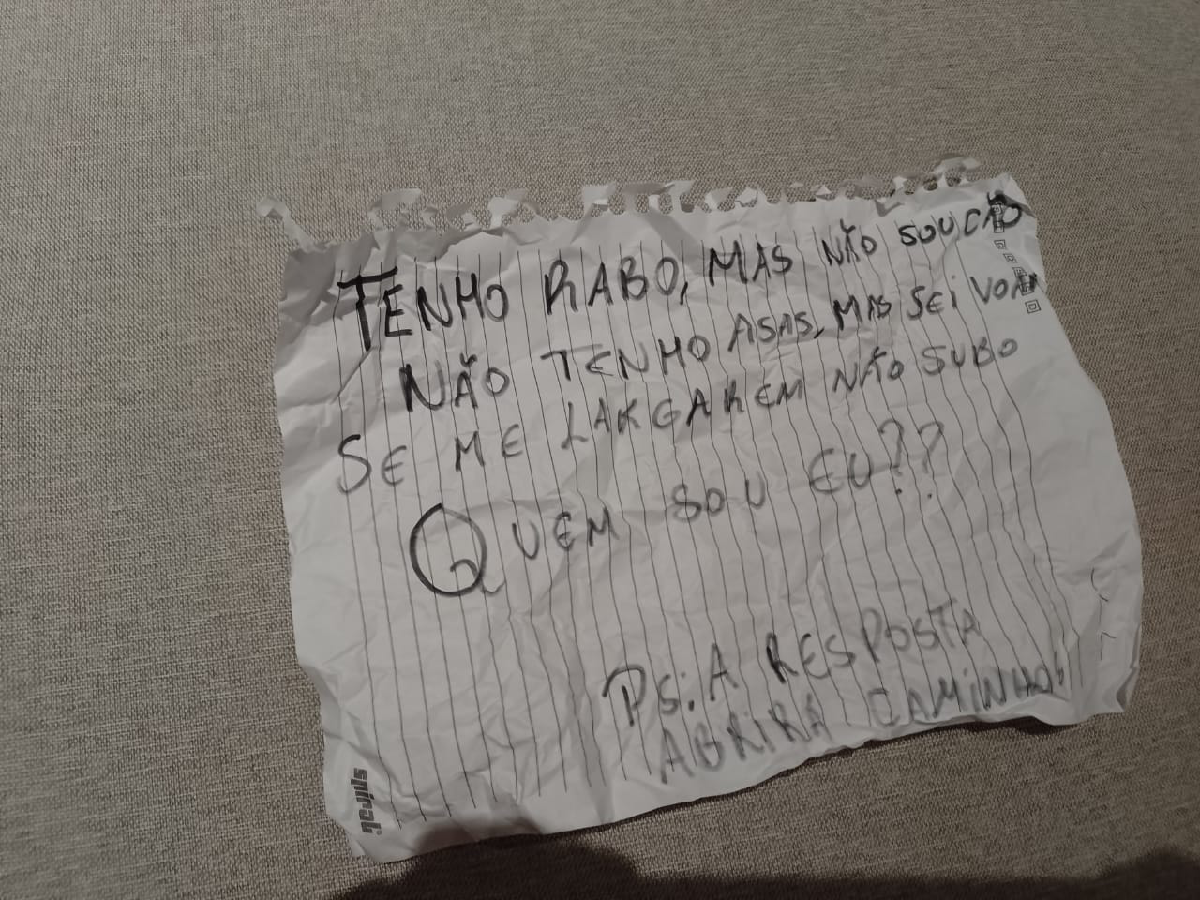 TENHO RABO, MAS NÃO SOU CÃO
NÃO TENHO ASAS, MAS SEI VOAR
SE ME LARGAREM NÃO SUBO
QUEM SOU EU??
PS: A RESPOSTA
ABRIRÁ CAMINHO!
spiral